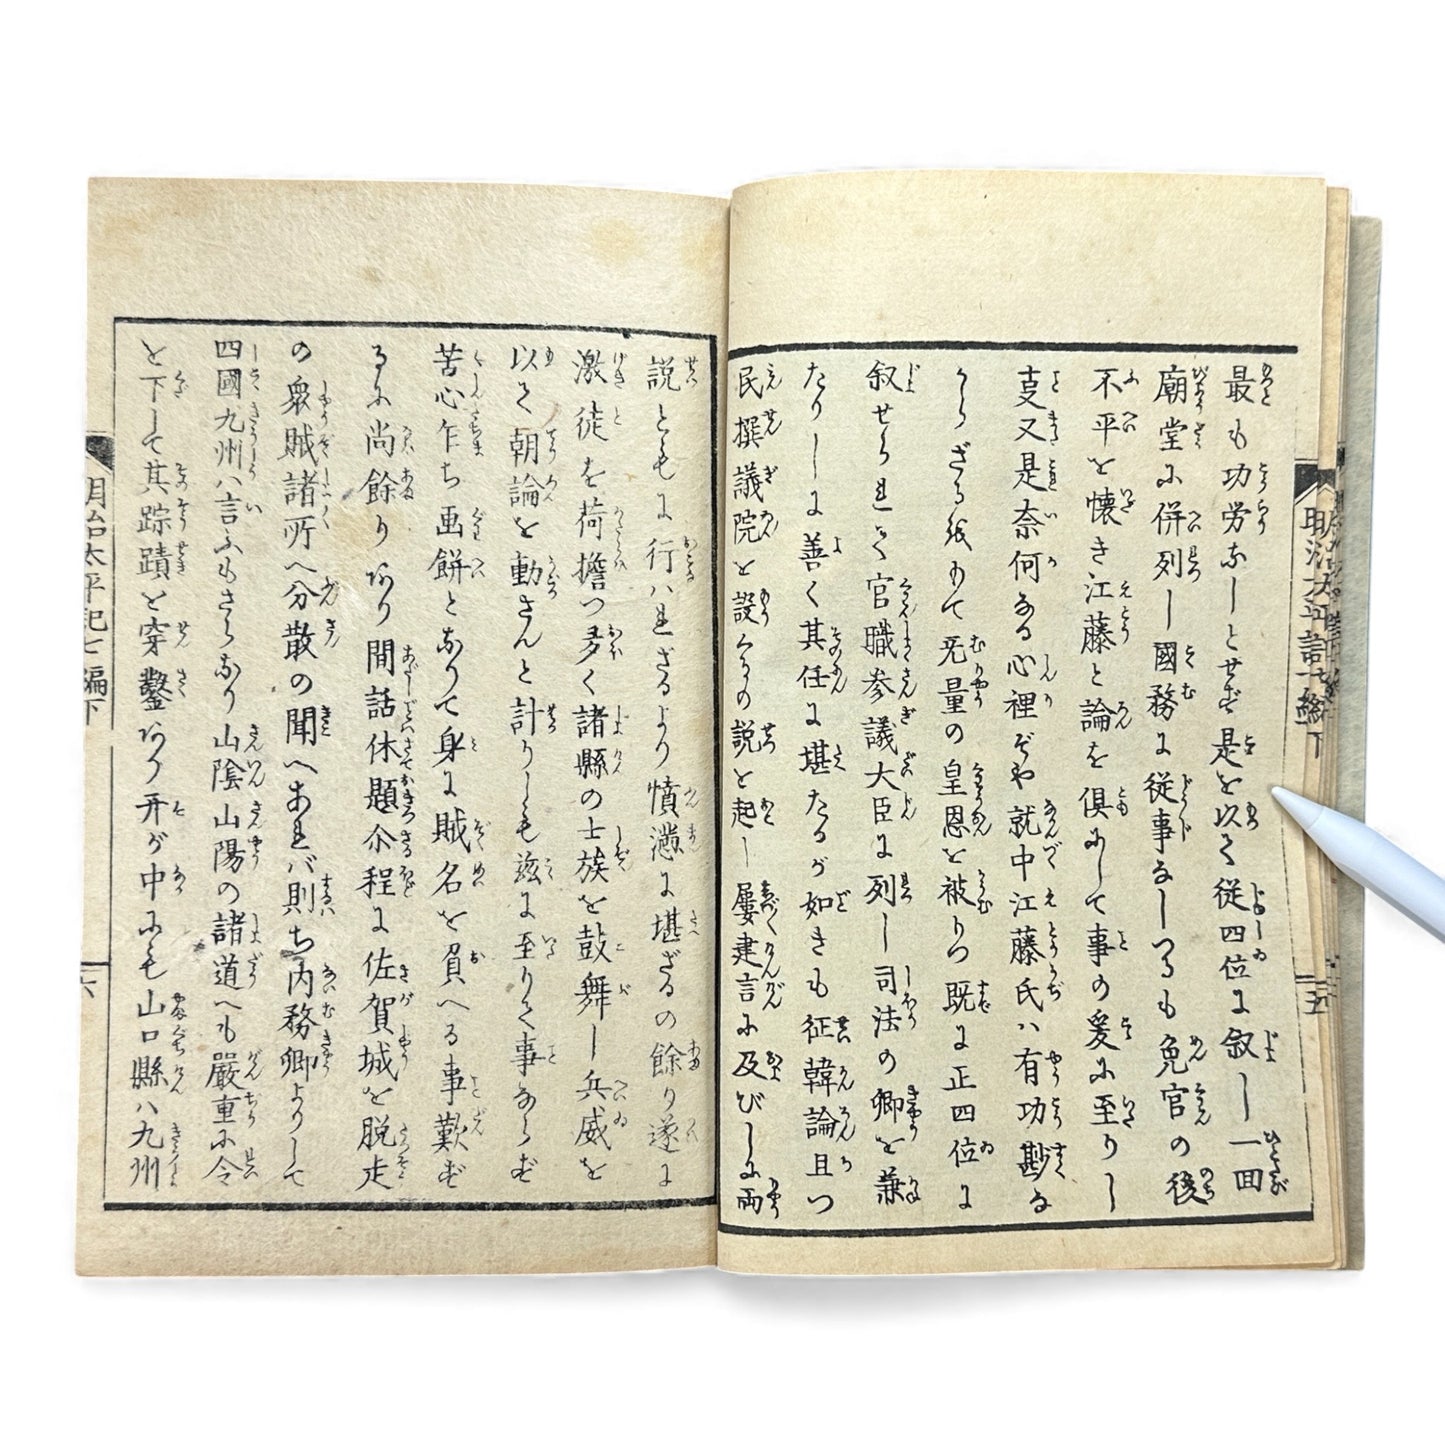 最も功労なしとせず是を以て従四位に叙し一回
廟堂に併列し國務に従事なしつるも免官の後
不平を懐き江藤と論を倶にして事の爰に至りし
支又是奈何なる心裡ぞや就中江藤氏ハ有功勘な
からざるを以て無量の皇恩を被りつ既に正四位に
叙せられて官職参議大臣に列し司法の卿を兼
たりしに善く其任に堪たるが如きも征韓論且つ
民撰議院を設くるの説を起し屡建言に及びしに両
説ともに行ハれざるより憤懣に堪ざるの餘り遂に
激徒を荷擔つ多く諸縣の士族を鼓舞し兵威を
以て朝論を動さんと計りしも茲に至りて事ならず
苦心乍ち画餅となりて身に賊名を負へる事歎ず
るに尚餘りあり間話休題尒程に佐賀城を脱走
の衆賊諸所へ分散の聞へあれバ則ち内務卿よりして
四國九州ハ言ふもさらなり山陰山陽の諸道へも嚴重に令
を下して其踪蹟を穿鑿あり开が中にも山口縣ハ九州
明治太平記七編下
五
明治太平記七編下
六